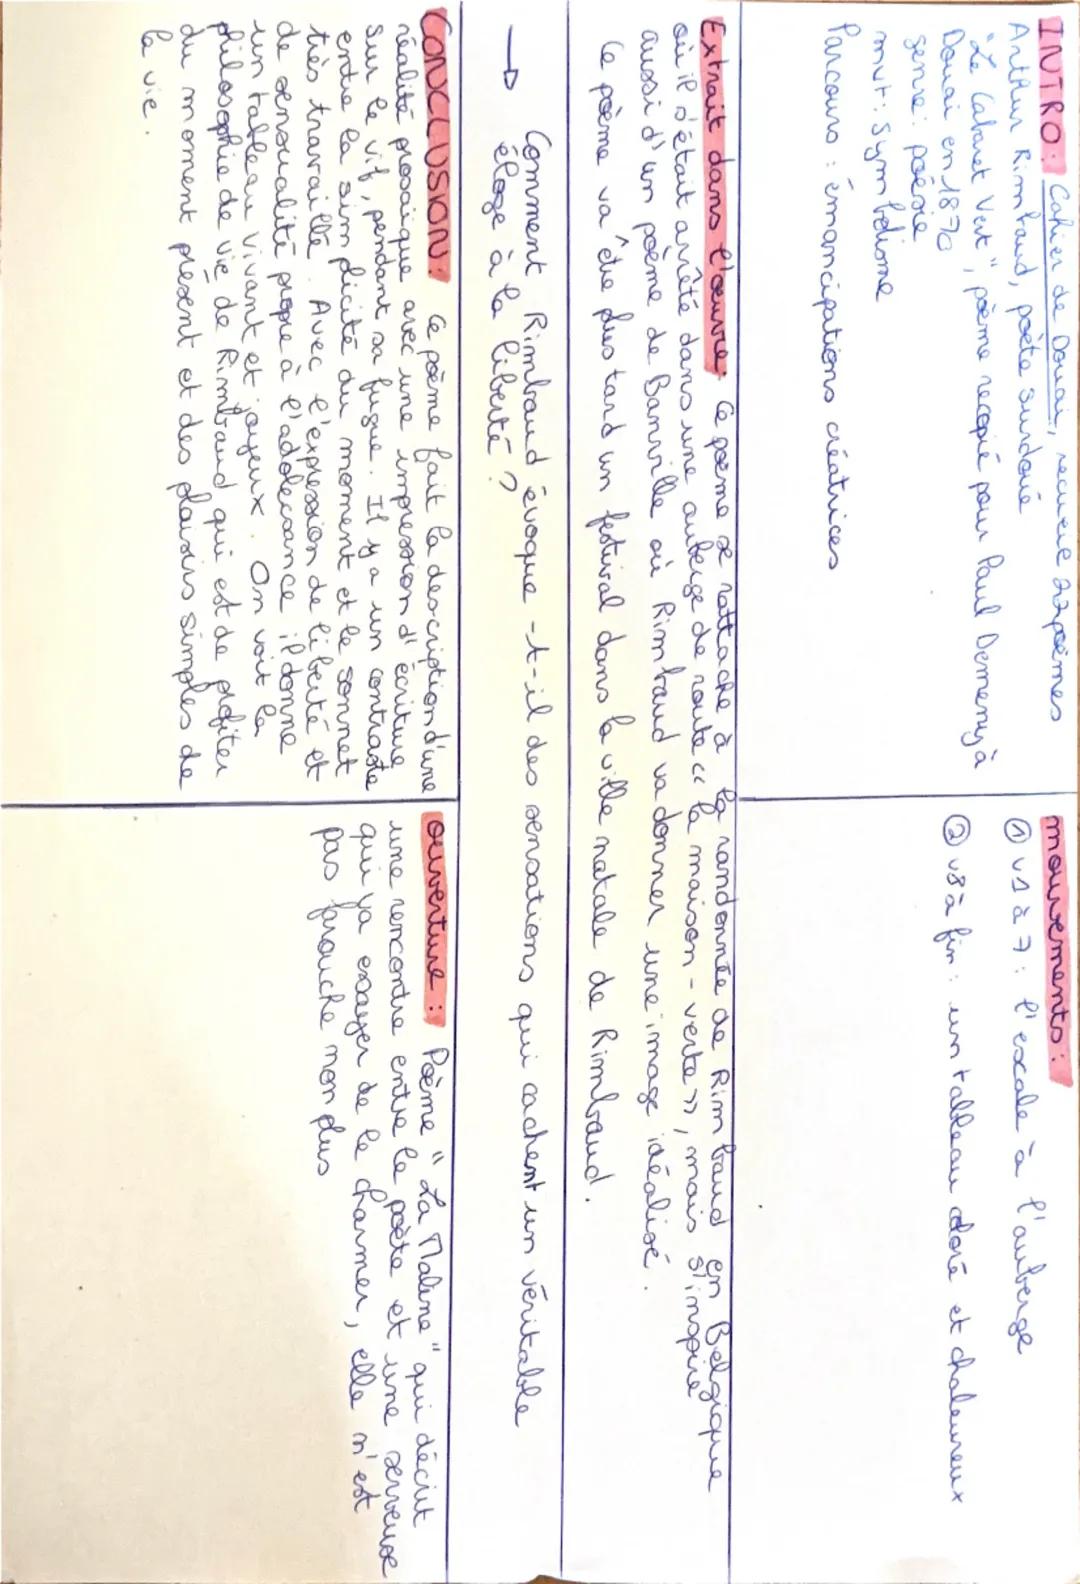 INTRO: Cahier de Douai, recueil 22 poèmes
Arthur Rimbaud, poète surdoué
"Le Cabaret Vert", poème recopié pour Paul Demeny à
Douai en 1870
genre: poésie
mvt: symbolisme
Parcours : émancipations créatrices
mouvements:
① v1 à 7 : l'escale à l'auberge
② v8 à fin : un tableau doré et chaleureux
Extrait dans l'œuvre: Ce poème se rattache à la randonnée de Rimbaud en Belgique
où il s'était arrêté dans une auberge de route « la maison-verte », mais s'inspire
aussi d'un poème de Banville où Rimbaud va donner une image idéalisé.
Ce poème va être plus tard un festival dans la ville natale de Rimbaud.
→ Comment Rimbaud évoque-t-il des sensations qui cachent un véritable
éloge à la liberté ?
CONCLUSION: Ce poème fait la description d'une
réalité prosaïque avec une impression d'écriture
sur le vif, pendant sa fugue. Il y a un contraste
entre la simplicité du moment et le sonnet
très travaillé. Avec l'expression de liberté et
de sensualité propre à l'adolescance il donne
un tableau vivant et joyeux. On voit la
philosophie de vie de Rimbaud qui est de profiter
du moment présent et des plaisirs simples de
la vie.
ouverture : Poème "La Maline" qui décrit
une rencontre entre le poète et une serveuse
qui va essayer de le charmer, elle n'est
pas farouche non plus